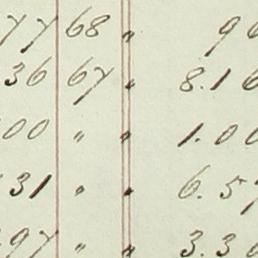 77 68 " 96
36 67 " 8.16
00 " " 1.00
31 " " 6.57
97 " " 3.36